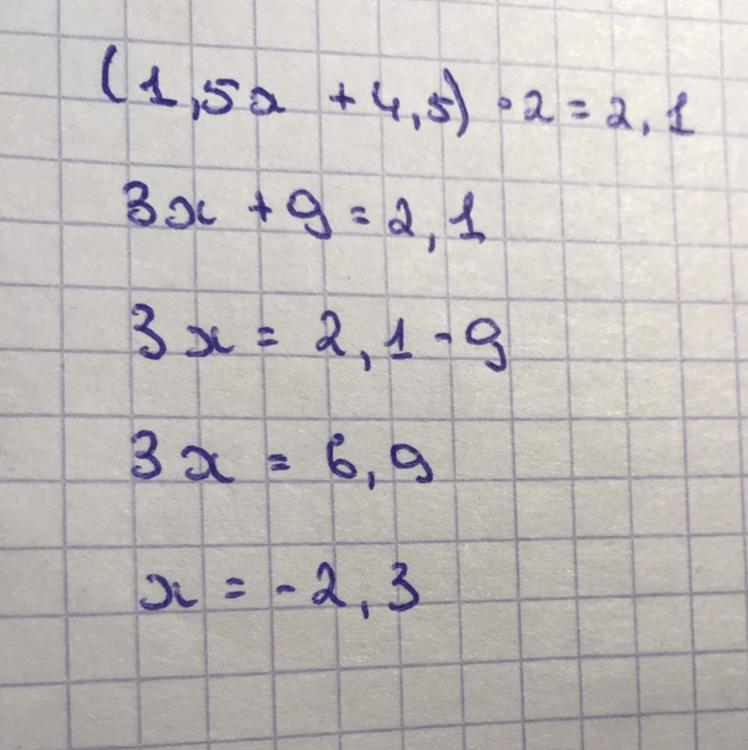 (1,5x + 4,5) · 2 = 2,1
3x + 9 = 2,1
3x = 2,1 - 9
3x = 6,9
x = -2,3